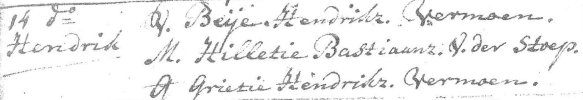 14 do V. Beije Hendrikz. Vermoen.
Hendrik M. Hilletie Bastiaanz. V. der Stoep.
G Grietie Hendrikz. Vermoen.